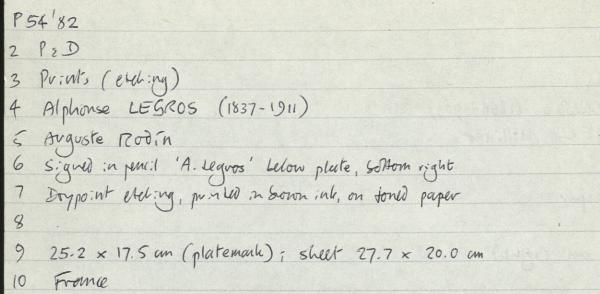 P54'82
2 P&D
3 Prints (etching)
4 Alphonse LEGROS (1837-1911)
5 Auguste Rodin
6 Signed in pencil 'A. Legros' below plate, bottom right
7 Drypoint etching, printed in brown ink, on toned paper
8
9 25.2 x 17.5 cm (platemark); sheet 27.7 x 20.0 cm
10 France